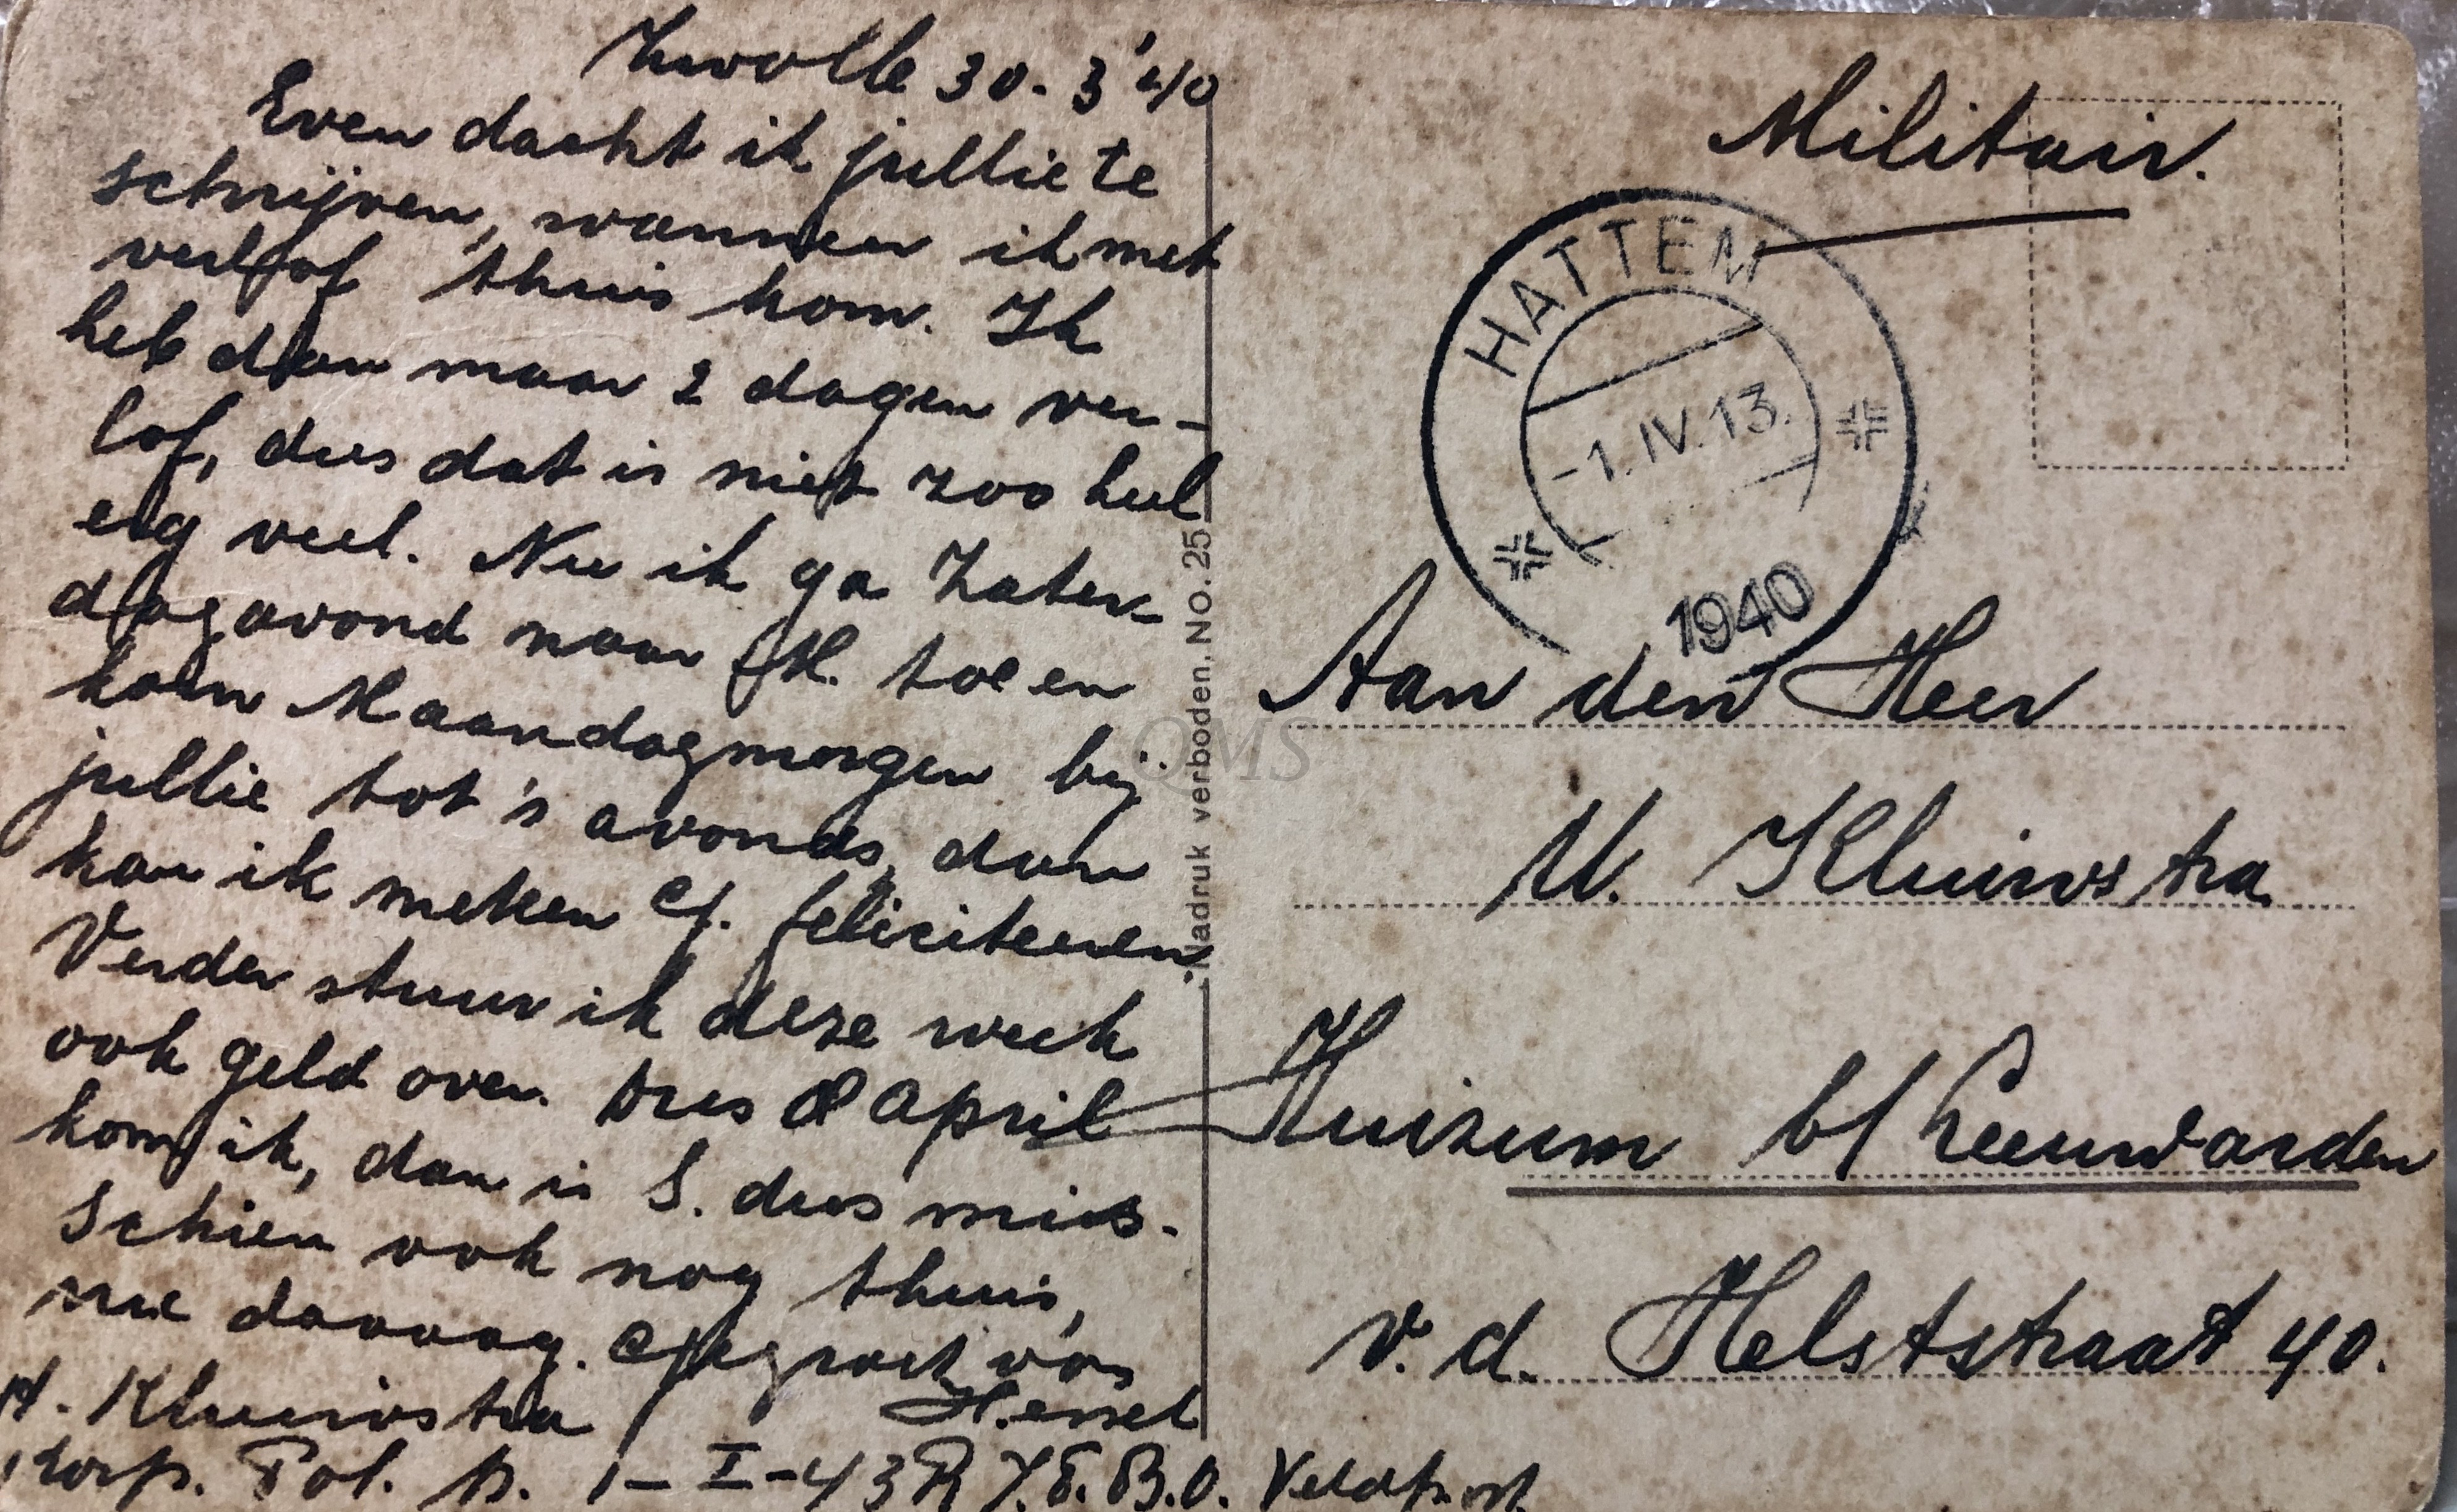 Zwolle 30. 3 '40
Even dacht ik jullie te
schrijven, wanneer ik met
verlof thuis kom. Ik
heb dan maar 2 dagen ver-
lof, dus dat is niet zoo heel
erg veel. Nu ik ga Zater-
dagavond naar H. toe en
kom Maandagmorgen bij
jullie tot 's avonds, dan
kan ik meteen G. feliciteeren.
Verder stuur ik deze week
ook geld over. Dus 8 April
kom ik, dan is S. dus mis-
schien ook nog thuis,
nu daaaag. gegroet van
Hessel
H. Kluivstra
Korp. Tol. D. 1-I-43 R.I. E.B.O. Veldpost
Nadruk verboden. No. 25
Militair.
HATTEM
-1.IV.13.
1940
Aan den Heer
U. Kluivstra
Huizum b/ Leeuwarden
v. d. Helststraat 40.
QMS